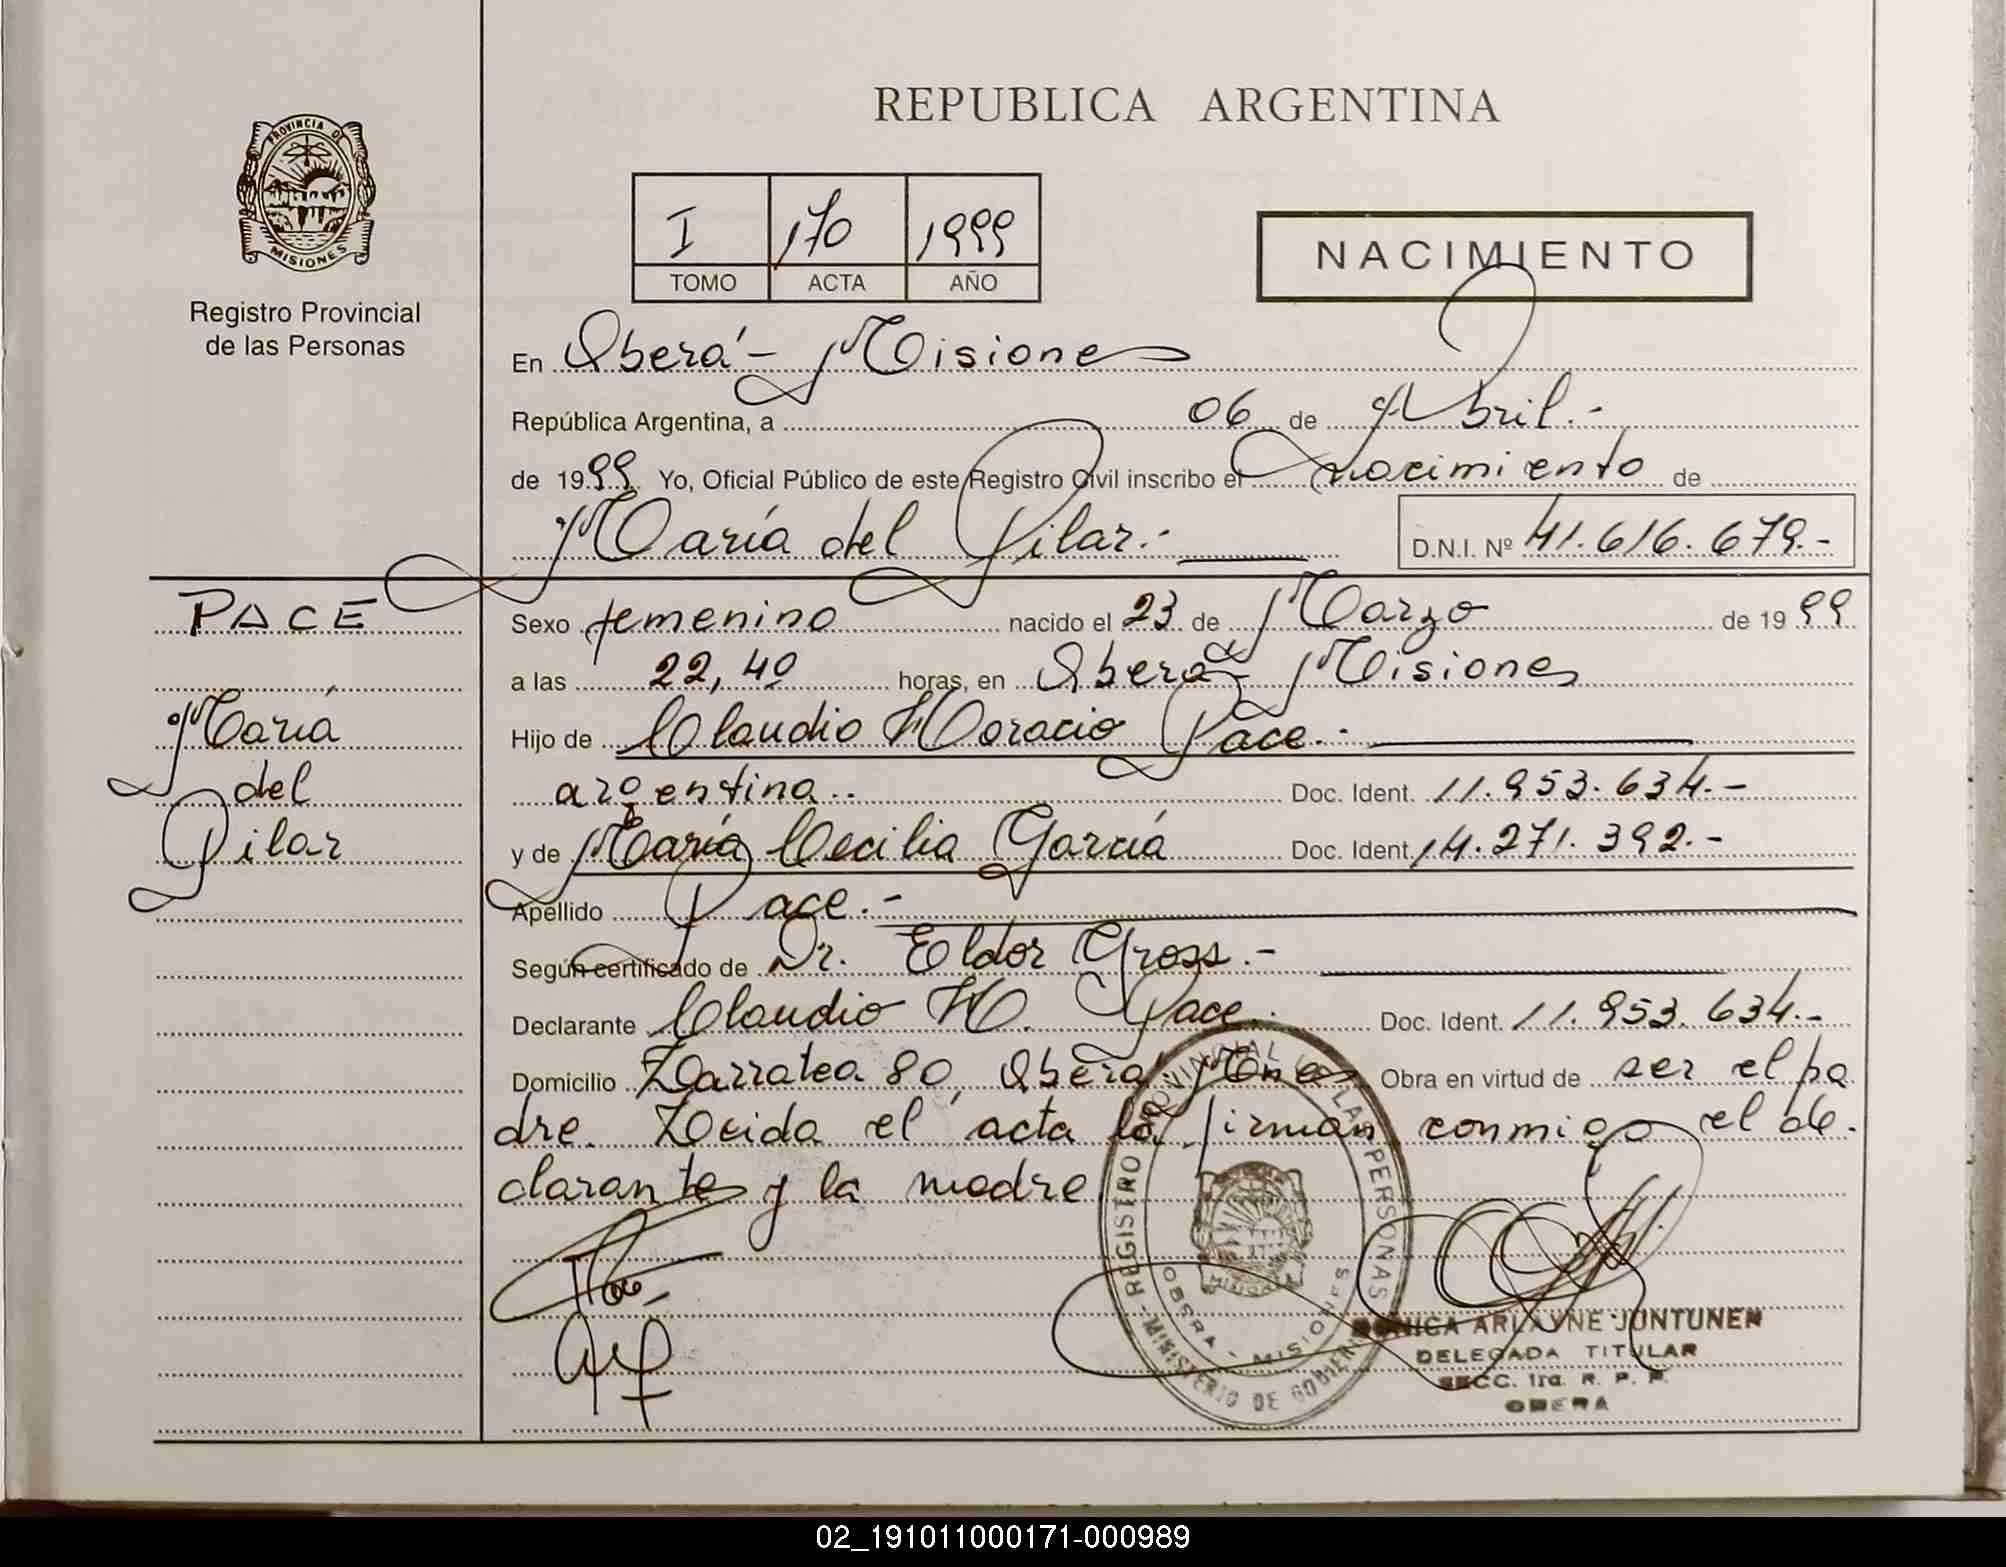 PROVINCIA DE
MISIONES
Registro Provincial
de las Personas
REPUBLICA ARGENTINA
I 170 1999
TOMO ACTA AÑO
NACIMIENTO
En Oberá - Misiones
República Argentina, a 06 de Abril.-
de 1999 Yo, Oficial Público de este Registro Civil inscribo el nacimiento de
María del Pilar.-
D.N.I. Nº 41.616.679.-
PACE
María
del
Pilar
Sexo femenino nacido el 23 de Marzo de 1999
a las 22,40 horas, en Oberá - Misiones
Hijo de Claudio Horacio Pace.-
argentina.. Doc. Ident. 11.953.634.-
y de María Cecilia García Doc. Ident. 14.271.392.-
Apellido Pace.-
Según certificado de Dr. Eldor Gross.-
Declarante Claudio H. Pace. Doc. Ident. 11.953.634.-
Domicilio Larratea 80, Oberá, Mnes Obra en virtud de ser el pa
dre. Leida el acta la firman conmigo el de-
clarante y la madre
REGISTRO PROVINCIAL DE LAS PERSONAS
MINISTERIO DE GOBIERNO
OBERA - MISIONES
MISIONES
ARLAYNE JUNTUNEN
DELEGADA TITULAR
SECC. 1ra. R. P. P.
OBERA
02_191011000171-000989